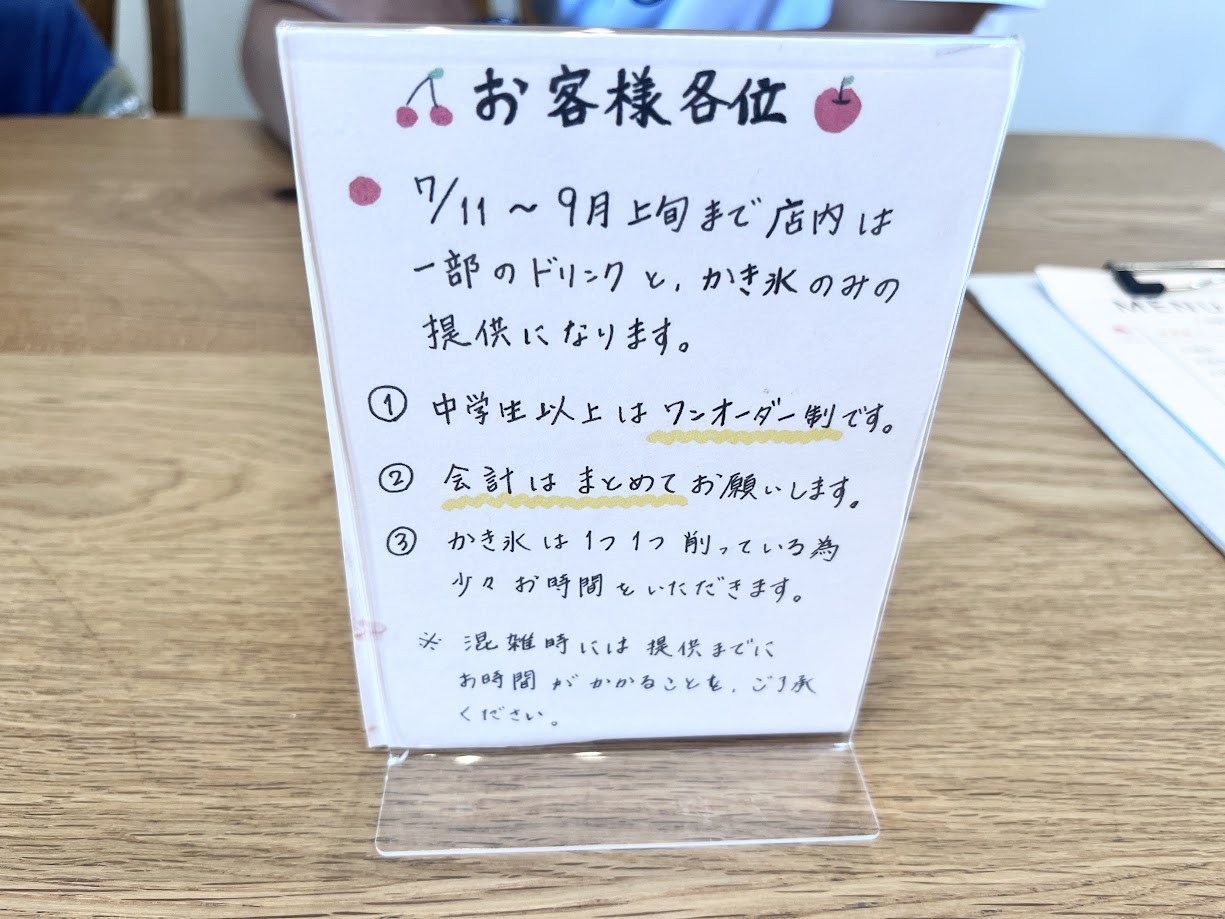 お客様各位
7/11～9月上旬まで店内は
一部のドリンクと、かき氷のみの
提供になります。
① 中学生以上はワンオーダー制です。
② 会計はまとめてお願いします。
③ かき氷は1つ1つ削っている為
少々お時間をいただきます。
※ 混雑時には提供までに
お時間がかかることを、ご了承
ください。
MENU